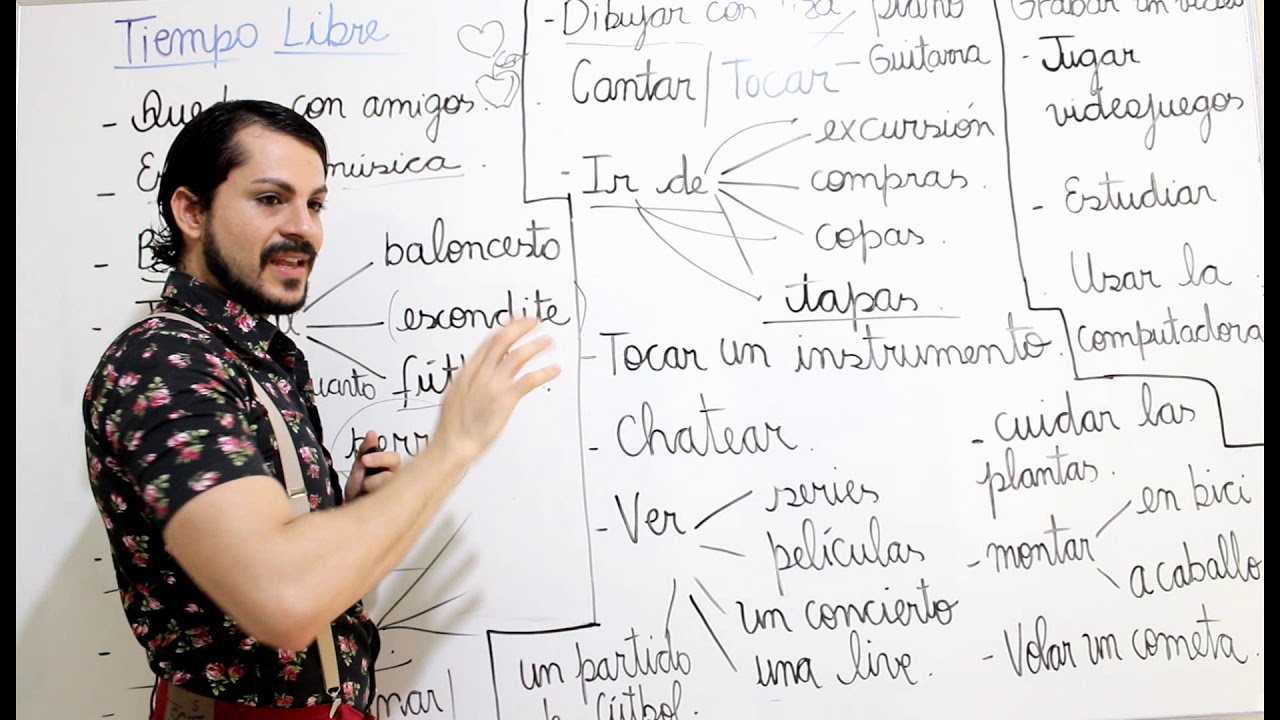 Tiempo Libre
- con amigos.
música.
baloncesto
(escondite)
perr
- Dibujar con tiza / piano
Cantar / Tocar - Guitarra
- Ir de
excursión
compras.
copas.
tapas.
- Tocar un instrumento.
- Chatear.
- Ver
series
películas
un concierto
una live.
un partido
de fútbol.
Grabar un video
- Jugar
videojuegos
- Estudiar
Usar la
computadora
- cuidar las
plantas.
- montar
en bici
a caballo
- Volar um cometa.